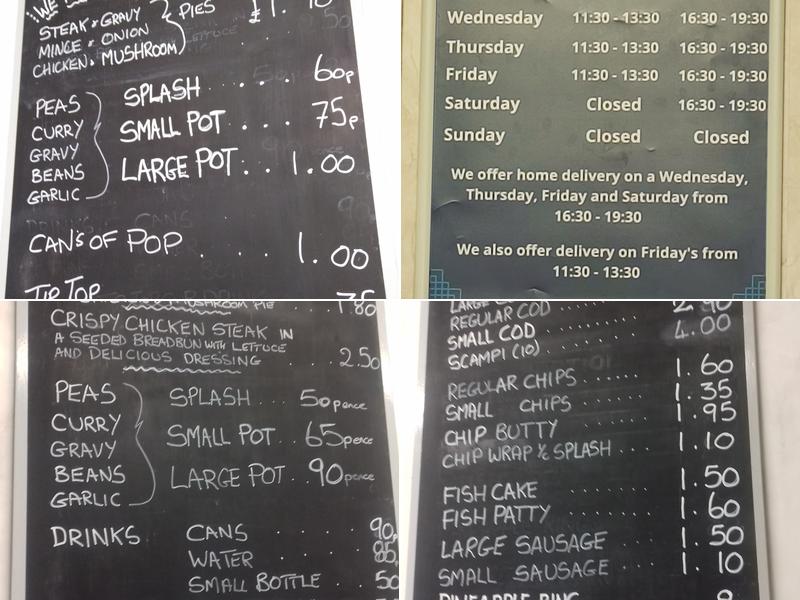 STEAK & GRAVY
MINCE & ONION
CHICKEN & MUSHROOM
PIES
PEAS
CURRY
GRAVY
BEANS
GARLIC
SPLASH . . . . 60p
SMALL POT . . . 75p
LARGE POT . . 1.00
CAN'S OF POP . . . . 1.00
TIP TOP
Wednesday 11:30 - 13:30 16:30 - 19:30
Thursday 11:30 - 13:30 16:30 - 19:30
Friday 11:30 - 13:30 16:30 - 19:30
Saturday Closed 16:30 - 19:30
Sunday Closed Closed
We offer home delivery on a Wednesday,
Thursday, Friday and Saturday from
16:30 - 19:30
We also offer delivery on Friday's from
11:30 - 13:30
MUSHROOM PIE 1.80
CRISPY CHICKEN STEAK IN
A SEEDED BREADBUN WITH LETTUCE
AND DELICIOUS DRESSING . . . 2.50
PEAS
CURRY
GRAVY
BEANS
GARLIC
SPLASH . . . 50pence
SMALL POT . . 65pence
LARGE POT . . 90pence
DRINKS CANS . . . . 90p
WATER . . . . 85
SMALL BOTTLE . . . 50
LARGE
REGULAR COD 2.90
SMALL COD 4.00
SCAMPI (10)
REGULAR CHIPS . . . . . . 1.60
SMALL CHIPS . . . . . . 1.35
CHIP BUTTY . . . . . . 1.95
CHIP WRAP & SPLASH . . . . 1.10
FISH CAKE . . . . . . 1.50
FISH PATTY . . . . . . 1.60
LARGE SAUSAGE . . . . 1.50
SMALL SAUSAGE . . . 1.10
PINEAPPLE RING